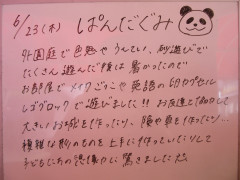 6/23(木) ぱんだぐみ
外園庭で色水やうんてい、砂遊びで
たくさん遊んだ後は暑かったので
お部屋でメイクごっこや英語の切りカルセル
レゴブロックで遊びました!! お友達と協力して
大きいお城を作ったり、階や車を作ったり…
複雑な形のものを上手に作っていたりして
子どもたちの発想力に驚きました